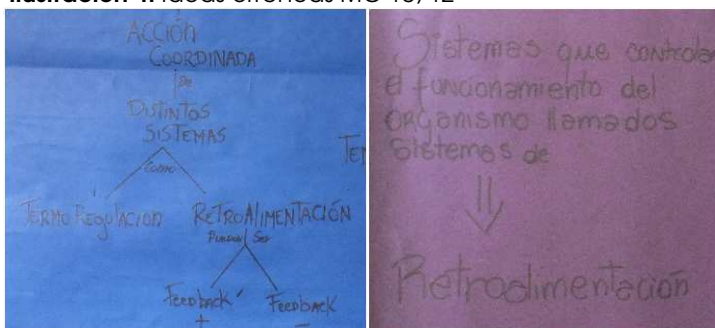 ACCIÓN
COORDINADA
de
DISTINTOS
SISTEMAS
como
TERMO REGULACION RETROALIMENTACIÓN
Pueden Ser
Feedback Feedback
+ -
Sistemas que controlan
el funcionamiento del
organismo llamados
sistemas de
Retroalimentación